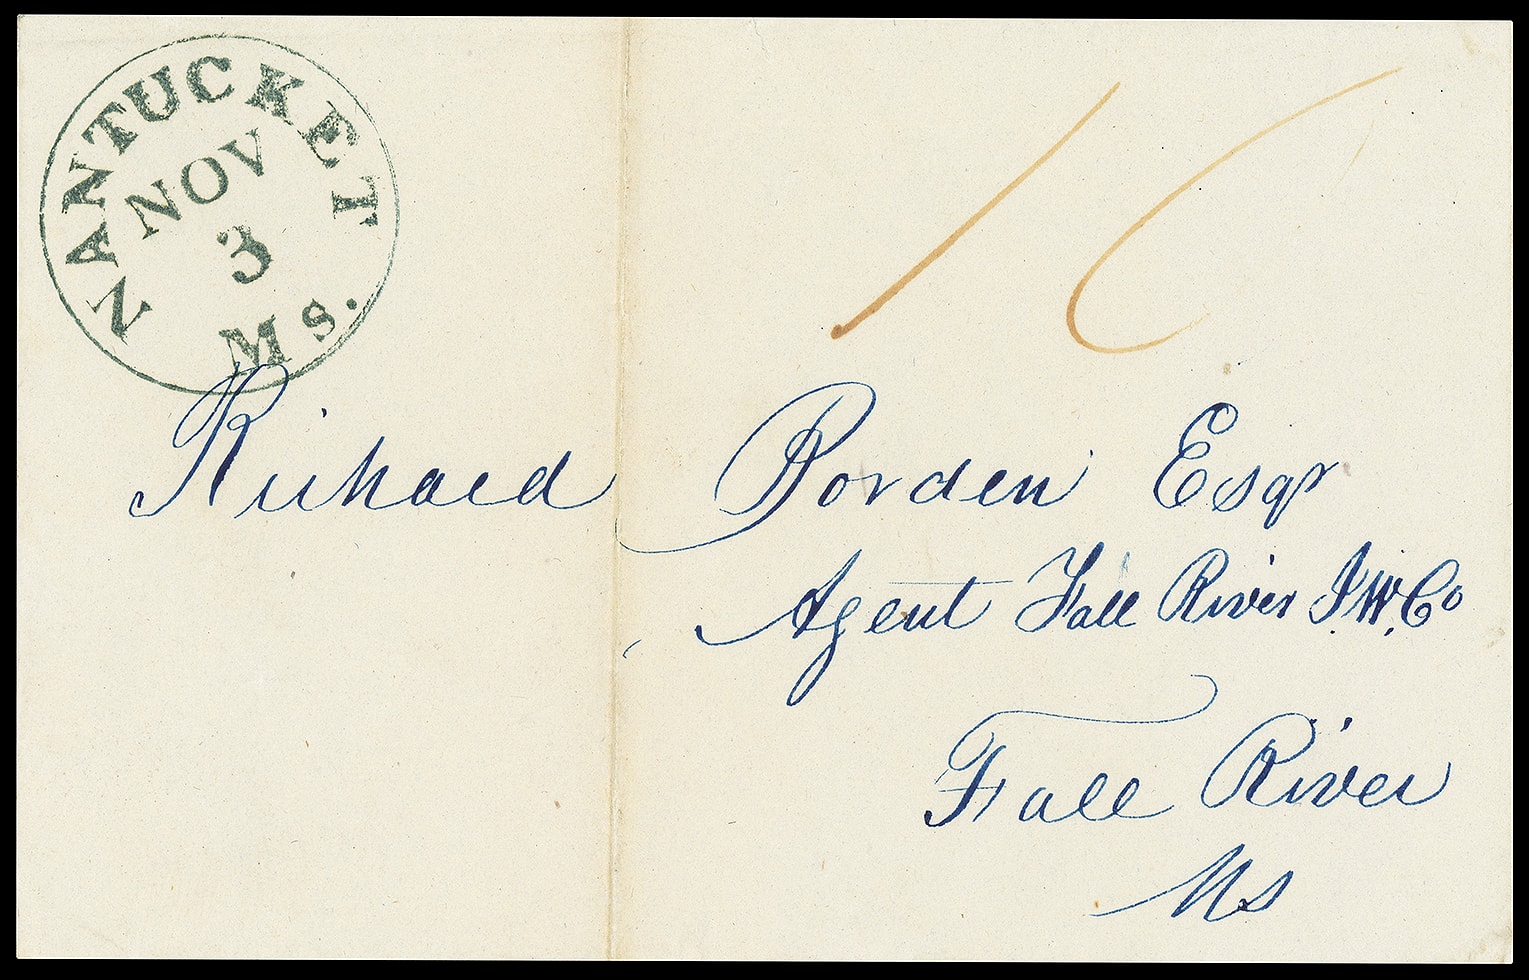 NANTUCKET
NOV
3
Ms.
10
Richard Borden Esqr
Agent Fall River I.W.Co
Fall River
Ms